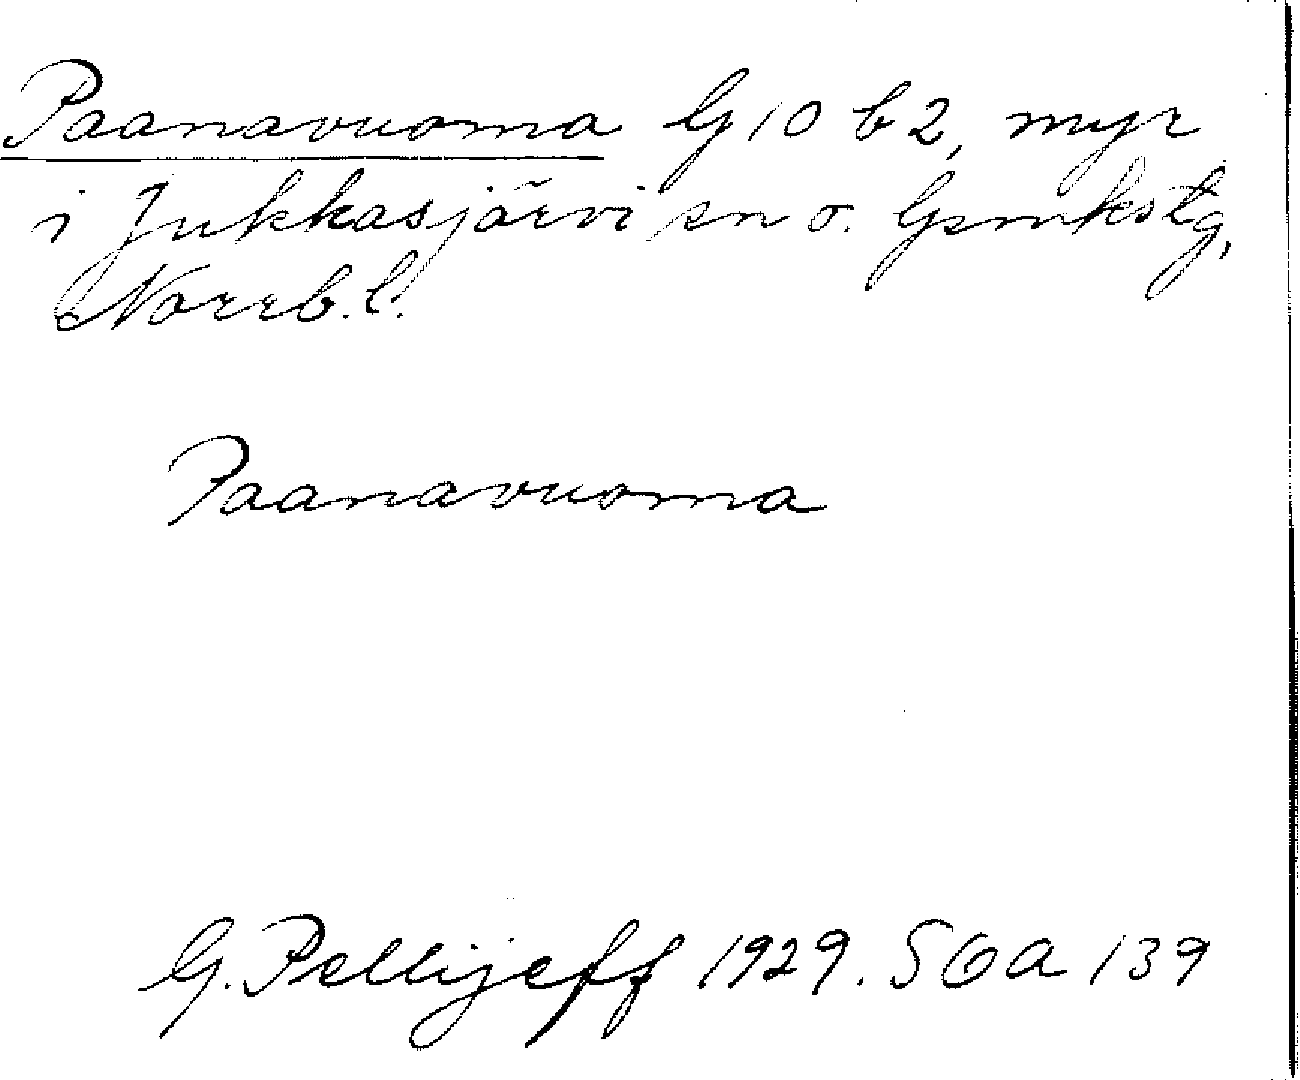 Paanavuoma G 10 b 2, myr
i Jukkasjärvi sn o. Gsmkstg,
Norrb. l.
Paanavuoma
G. Pellijeff 1929. SOA 139